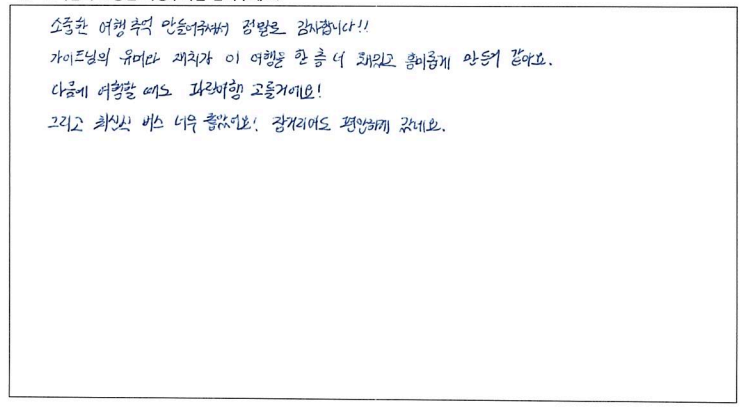 소중한 여행 추억 만들어주셔서 정말로 감사합니다!!
가이드님의 유머와 재치가 이 여행을 한 층 더 재밌고 흥미롭게 만든거 같아요.
다음에 여행할 때도 파란여행 고를거에요!
그리고 최신식 버스 너무 좋았어요! 장거리여도 편안하게 갔네요.